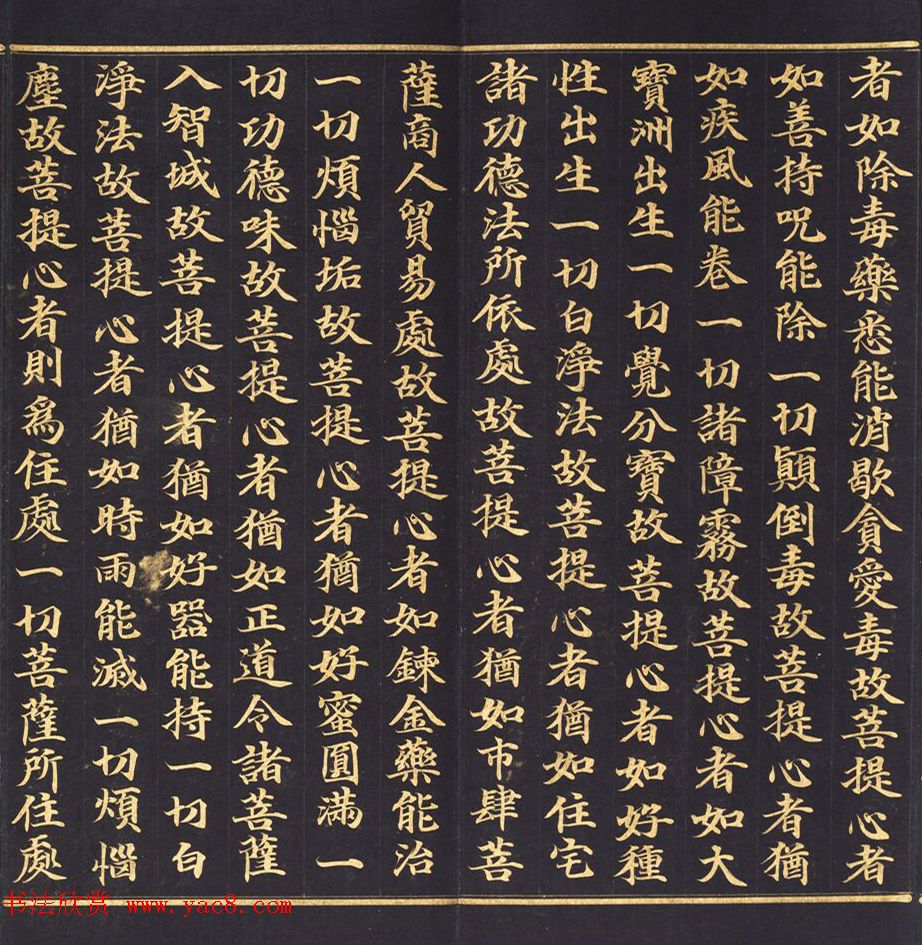 者如除毒藥悉能消歇貪愛毒故菩提心者
如善持呪能除一切顚倒毒故菩提心者猶
如疾風能卷一切諸障霧故菩提心者如大
寶洲出生一切覺分寶故菩提心者如好種
性出生一切白淨法故菩提心者猶如住宅
諸功德法所依處故菩提心者猶如市肆菩
薩商人貿易處故菩提心者如鍊金藥能治
一切煩惱垢故菩提心者猶如好蜜圓滿一
切功德味故菩提心者猶如正道令諸菩薩
入智城故菩提心者猶如好器能持一切白
淨法故菩提心者猶如時雨能滅一切煩惱
塵故菩提心者則爲住處一切菩薩所住處
书法欣赏 www.yac8.com